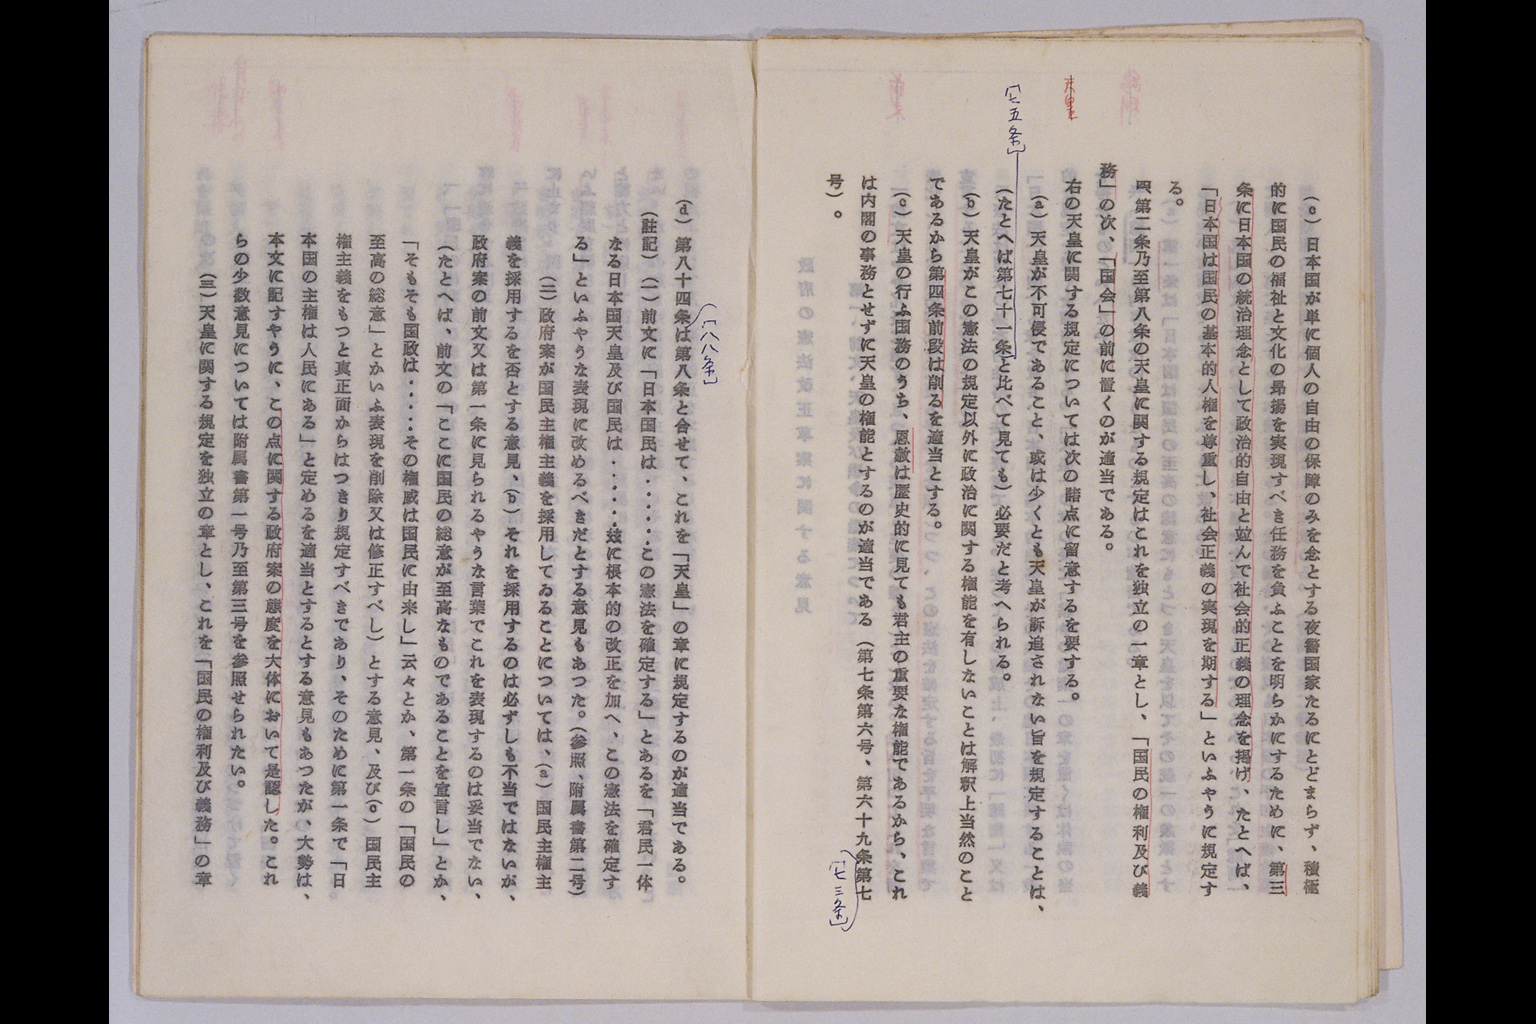 (c) 日本国が単に個人の自由の保障のみを念とする夜警国家たるにとどまらず、積極
的に国民の福祉と文化の昂揚を実現すべき任務を負ふことを明らかにするために、第三
条に日本国の統治理念として政治的自由と並んで社会的正義の理念を掲げ、たとへば、
「日本国は国民の基本的人権を尊重し、社会正義の実現を期する」といふやうに規定す
る。
四、第二条乃至第八条の天皇に関する規定はこれを独立の一章とし、「国民の権利及び義
務」の次、「国会」の前に置くのが適当である。
天皇
右の天皇に関する規定については次の諸点に留意するを要する。
(a) 天皇が不可侵であること、或は少くとも天皇が訴追されない旨を規定することは、
〔七五条〕
(たとへば第七十一条と比べて見ても)必要だと考へられる。
(b) 天皇がこの憲法の規定以外に政治に関する権能を有しないことは解釈上当然のこと
であるから第四条前段は削るを適当とする。
(c) 天皇の行ふ国務のうち、恩赦は歴史的に見ても君主の重要な権能であるから、これ
は内閣の事務とせずに天皇の権能とするのが適当である(第七条第六号、第六十九条第七
〔七三条〕
号)。
(d) 第八十四条は第八条と合せて、これを「天皇」の章に規定するのが適当である。
〔八八条〕
(註記) (一)前文に「日本国民は・・・・・この憲法を確定する」とあるを「君民一体
なる日本国天皇及び国民は・・・・・玆に根本的の改正を加へ、この憲法を確定す
る」といふやうな表現に改めるべきだとする意見もあつた。(参照、附属書第二号)
(二)政府案が国民主権主義を採用してゐることについては、(a)国民主権主
義を採用するを否とする意見、(b)それを採用するのは必ずしも不当ではないが、
政府案の前文又は第一条に見られるやうな言葉でこれを表現するのは妥当でない、
(たとへば、前文の「ここに国民の総意が至高なものであることを宣言し」とか、
「そもそも国政は・・・・その権威は国民に由来し」云々とか、第一条の「国民の
至高の総意」とかいふ表現を削除又は修正すべし)とする意見、及び(c)国民主
権主義をもつと真正面からはつきり規定すべきであり、そのために第一条で「日
本国の主権は人民にある」と定めるを適当とするとする意見もあつたが、大勢は、
本文に記すやうに、この点に関する政府案の態度を大体において是認した。これ
らの少数意見については附属書第一号乃至第三号を参照せられたい。
(三)天皇に関する規定を独立の章とし、これを「国民の権利及び義務」の章